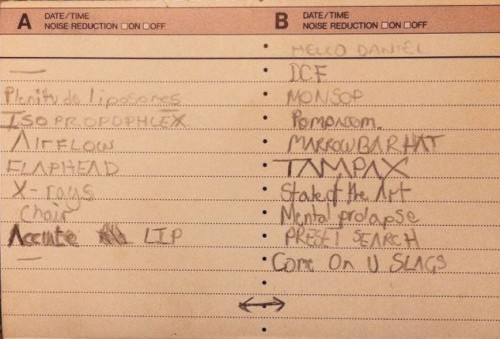 A DATE/TIME
NOISE REDUCTION □ON □OFF
—
Plenitude liposomes
ISOPROPOPHLEX
AIRFLOW
FLAPHEAD
X-rays
Chair
Accute LIP
—
B DATE/TIME
NOISE REDUCTION □ON □OFF
HELLO DANIEL
DCF
MONSOP
Pomponom.
MARROWBAR HAT
TAMPAX
State of the Art
Mental prolapse
PRESET SEARCH
Come On U SLAGS